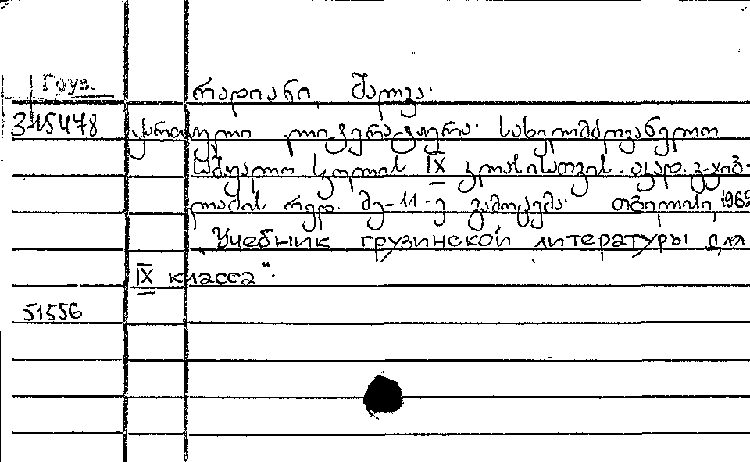 Груз.
რადიანი, შალვა.
345478 ქართული ლიტერატურა. სახელმძღვანელო
საშუალო სკოლის IX კლასისათვის. აკად. გ. ჯიბ-
ლაძის რედ. მე-11-ე გამოცემა. თბილისი, 1965
"Учебник грузинской литературы для
IX класса".
51556